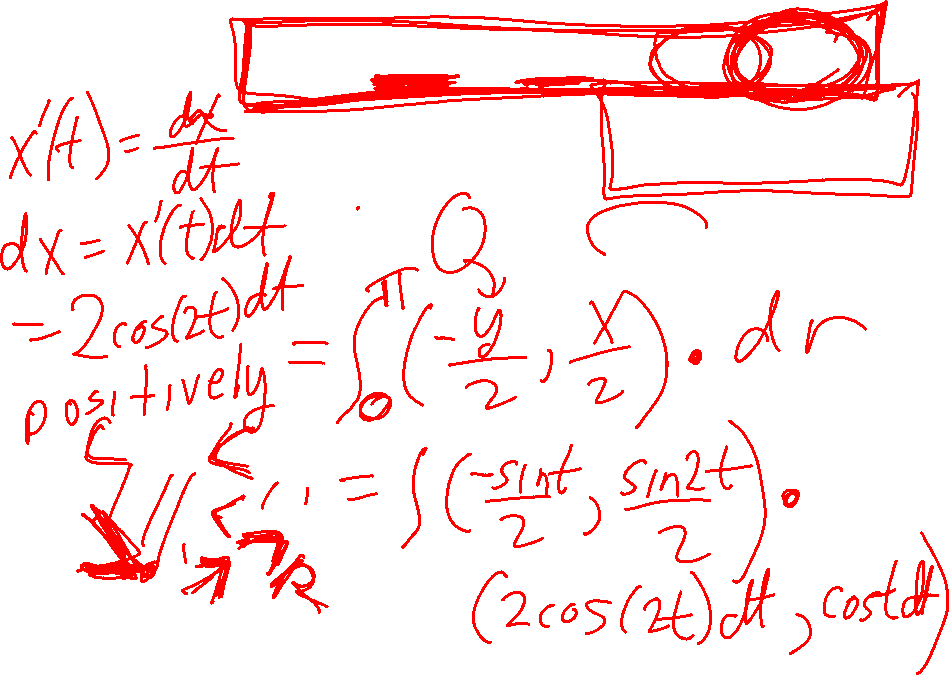 x'(t) = dx/dt
dx = x'(t)dt
= 2cos(2t)dt
positively
Q
= ∫₀^π (-y/2, x/2) • dr
= ∫ (-sint/2, sin2t/2) •
(2cos(2t)dt, costdt)